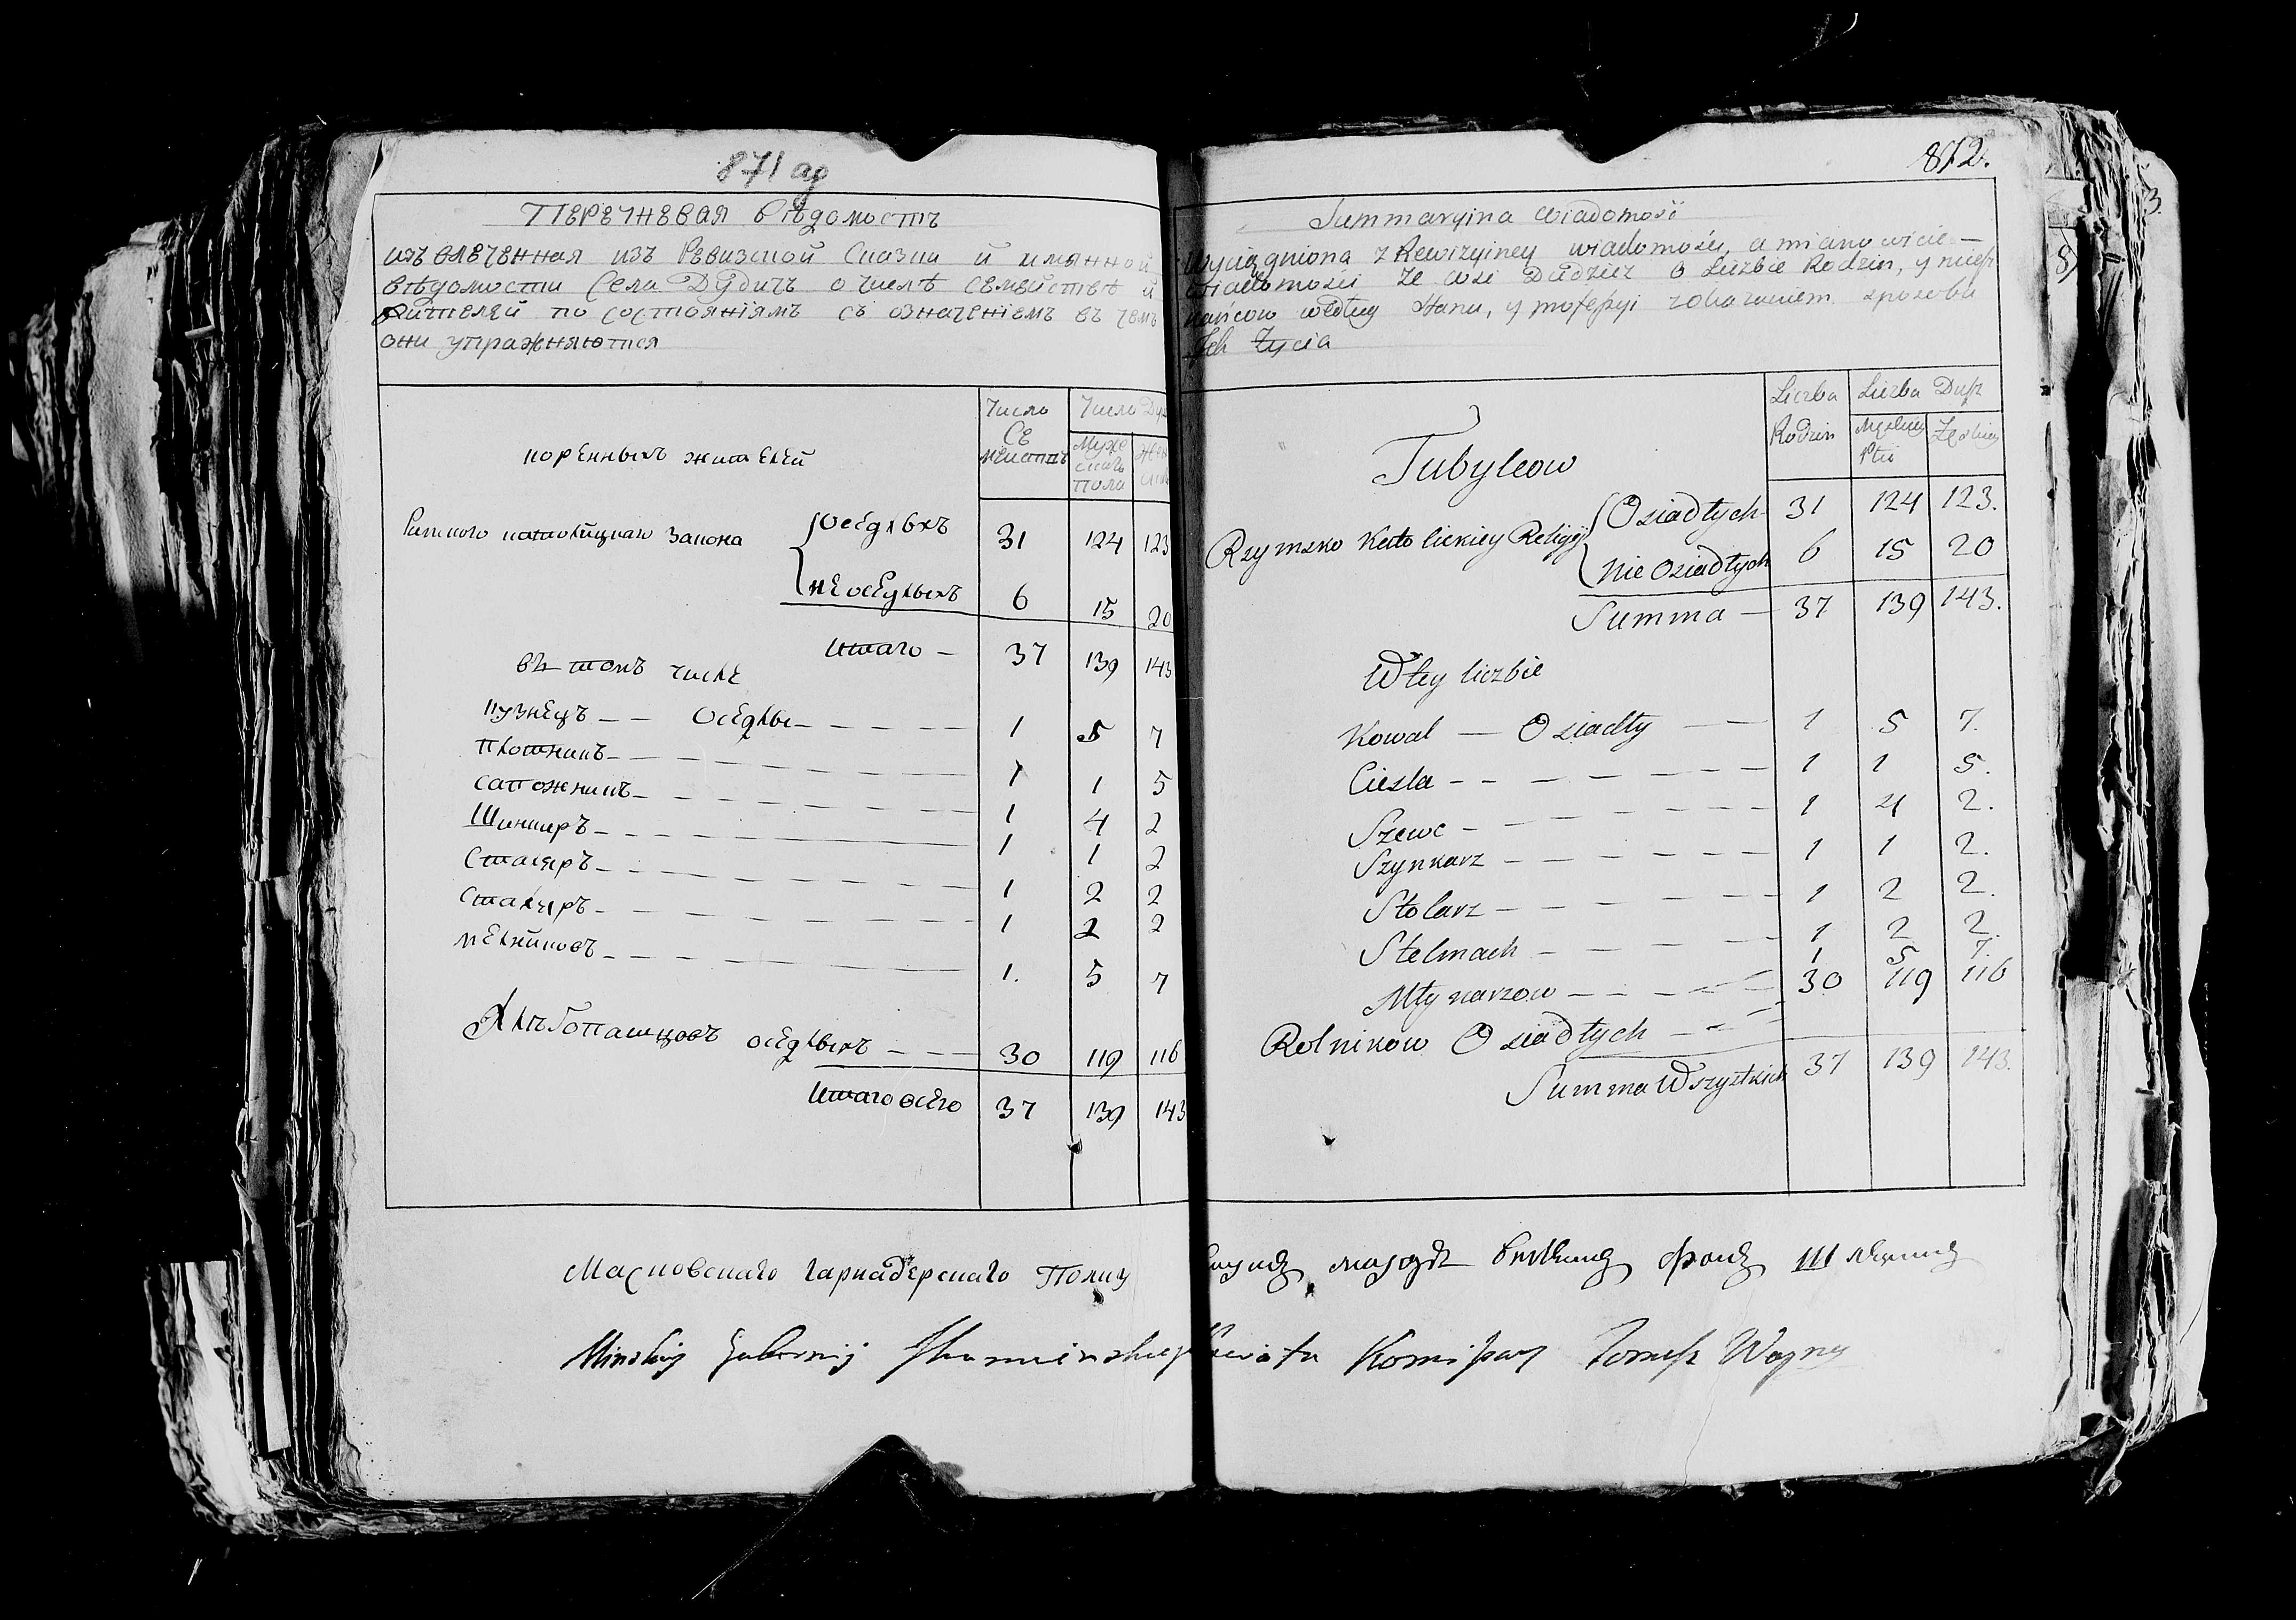 871 ад
Перечневая Вѣдомость
извлеченная изъ Ревизской Сказки и имянной
вѣдомости Села Дудичъ о числѣ семействъ и
жителей по состоянiямъ съ означенiемъ въ чемъ
они упражняются
коренныхъ жителей
Число Се мействъ
Число Душ
Муже скаго пола
Жен
Римского католицкаго Закона
Оседлыхъ 31 124 123
не оседлыхъ 6 15 20
Итаго – 37 139 143
въ томъ числе
кузнецъ – – Оседлы – – – – 1 5 7
Плотникъ – – – – 1 1 5
сапожникъ – – – – 1 4 2
Шинкеръ – – – – 1 1 2
Сталяръ – – – – 1 2 2
Сталяръ – – – – 1 2 2
мелниковъ – – – – 1. 5 7
Хлѣбопашцовъ оседлыхъ – – – 30 119 116
Итаго всего 37 139 143
872.
Summaryina wiadomość
Wyciągniona z Rewizyiney wiadomości, a mianowicie –
wiadomości ze wsi Dudzicz o Liczbie Rodzin, y miesz
kańcow według Stanu, y professyi zokazaniem sposobu
Ich życia
Tubylcow
Liczba Rodzin
Liczba Dusz
Męskiey Płci
Żeńskiey
Rzymsko Katolickiey Religij
Osiadłych 31 124 123.
nie Osiadłych 6 15 20
Summa – 37 139 143.
W tey liczbie
Kowal – Osiadły – – 1 5 7.
Ciesla – – – – 1 1 5.
Szewc – – – – 1 4 2.
Szynkarz – – – – 1 1 2.
Stolarz – – – – 1 2 2.
Stelmach – – – – 1 2 2.
Młynarzow – – – – 1 5 7.
Rolnikow Osiadłych – – – 30 119 116
Summa Wszystkich 37 139 143.
Масковскаго гарнадерскаго Полку
Minskiej Gubernij Ihumenskiego Powiatu Komissarz Tomasz Wazny